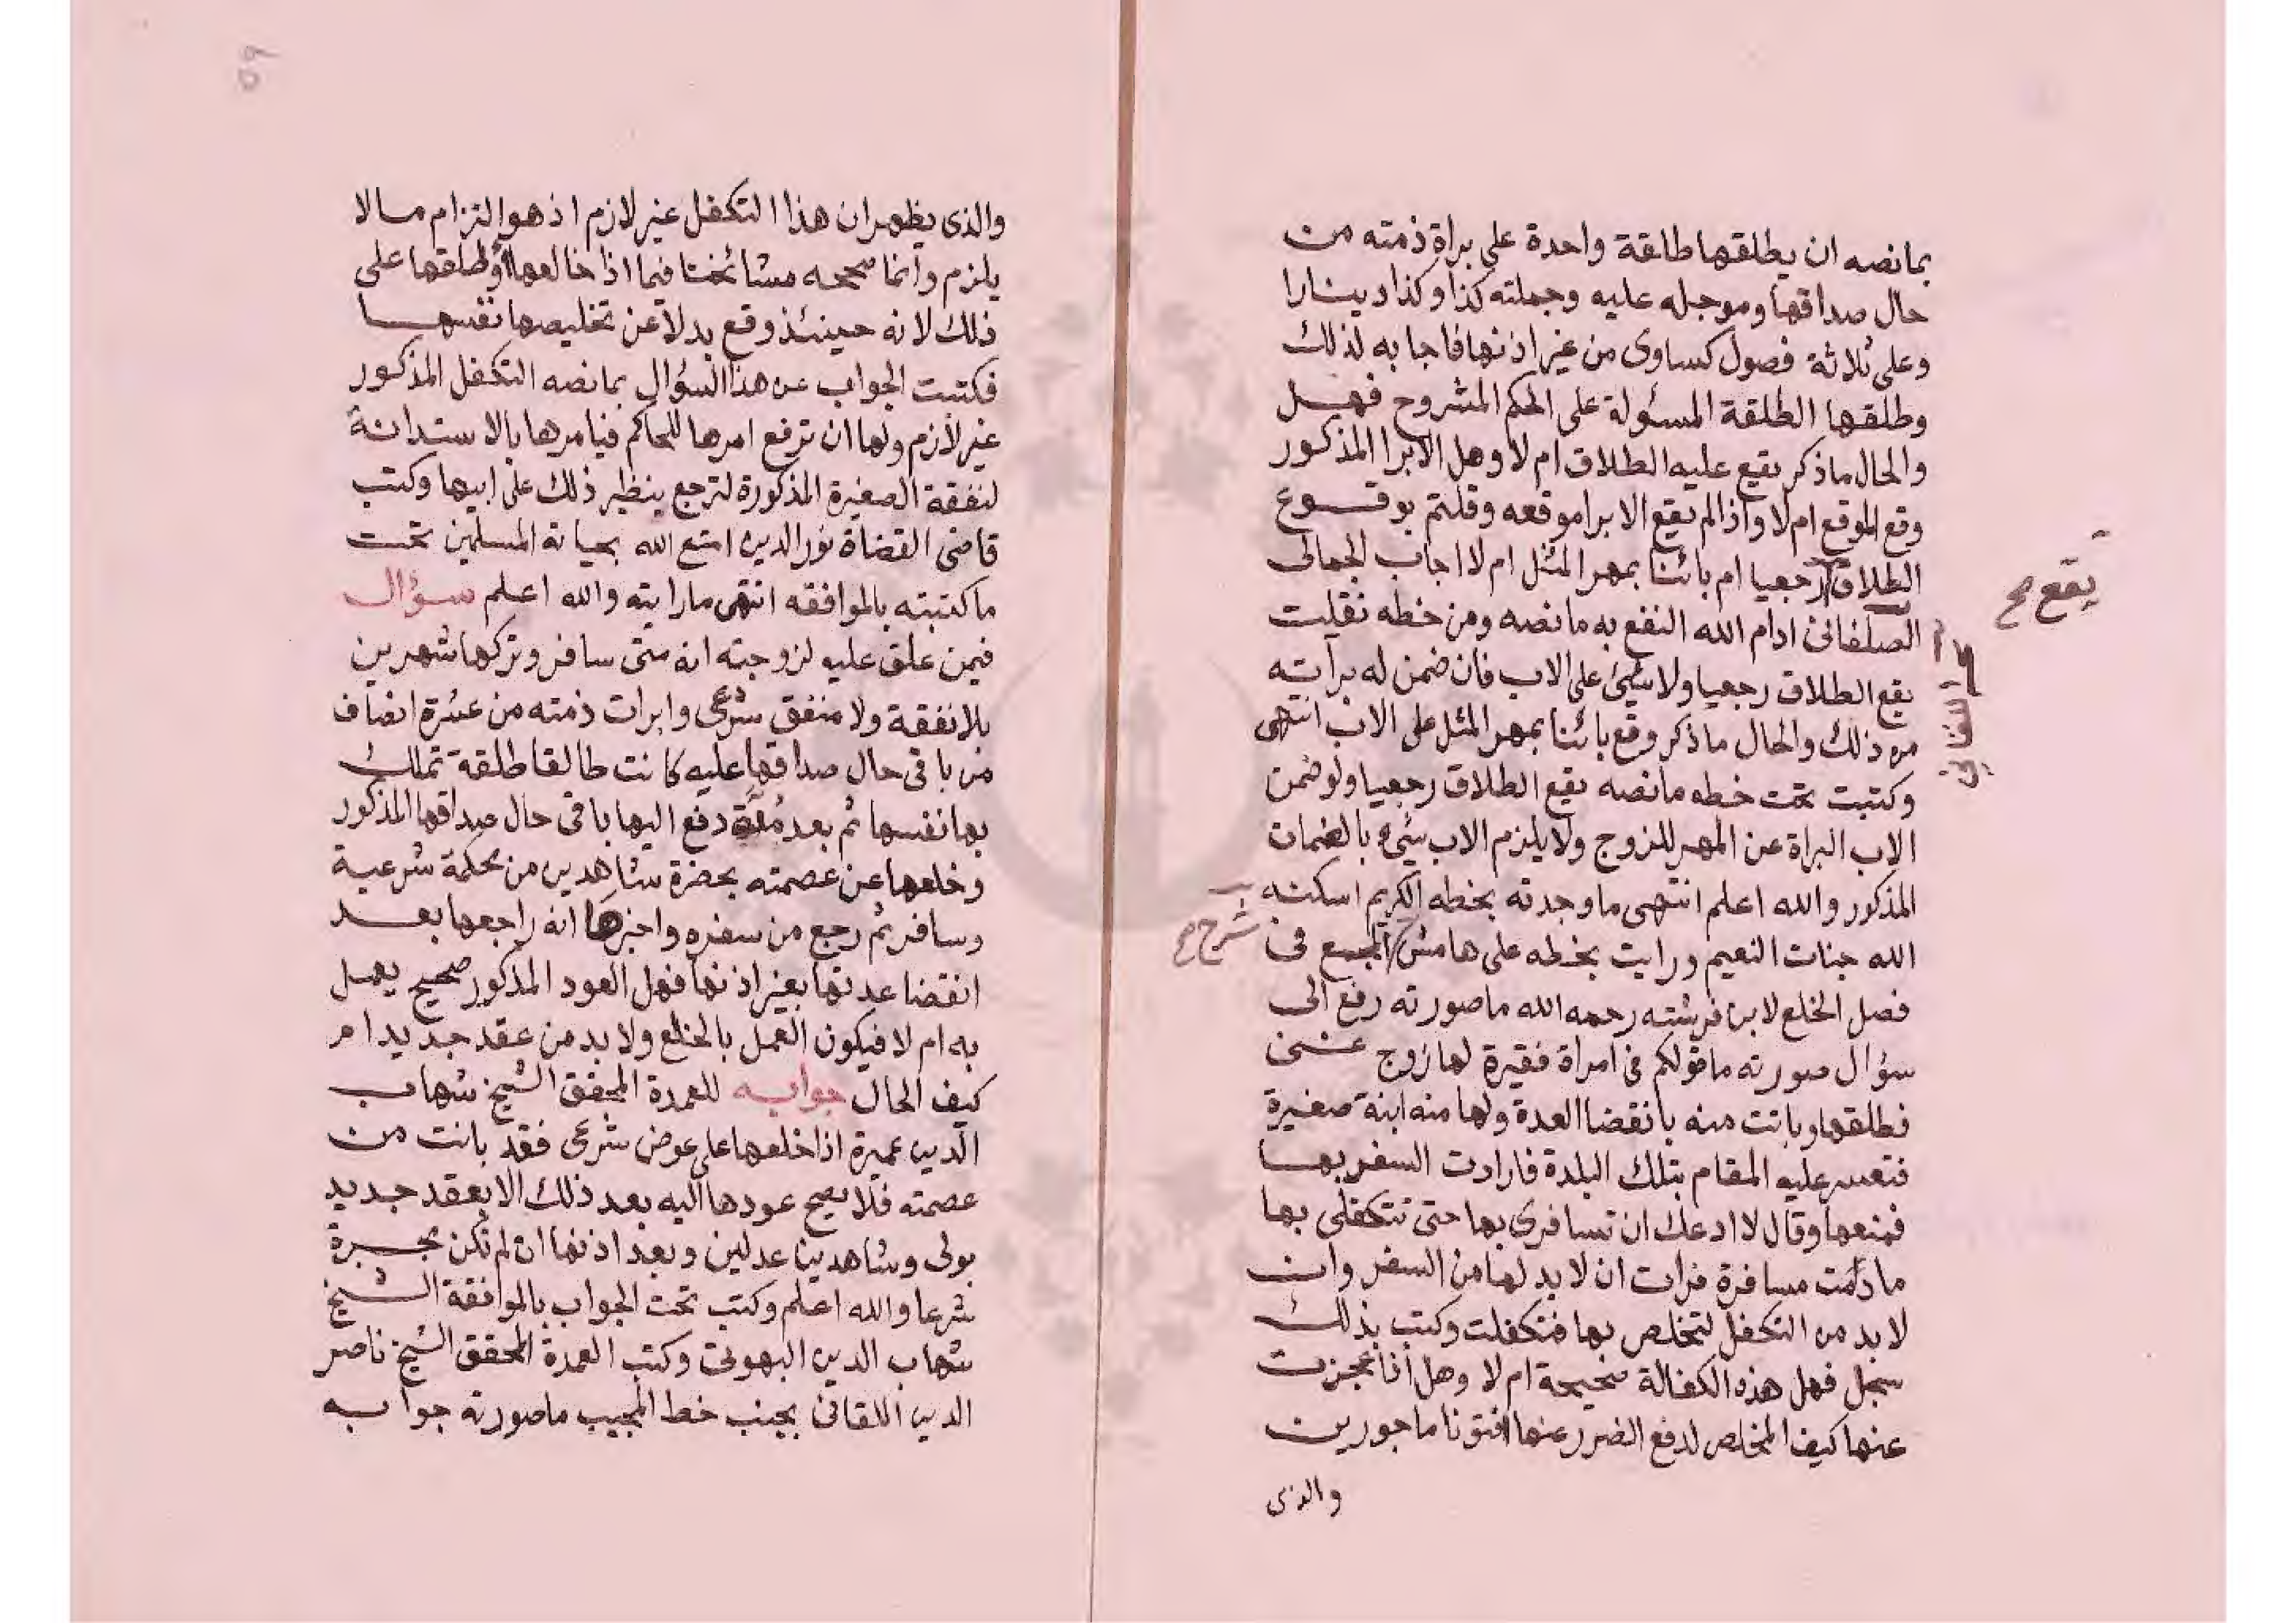 بمانصه ان يطلقها طلقة واحدة على براة ذمته من
حال صداقها وموجله عليه وجملته كذا وكذا دينارا
وعلى ثلاثة فصول كساوى من غير اذنها فاجابه لذلك
وطلقها الطلقة المسئولة على الحكم المشروح فهل
والحال ماذكر يقع عليه الطلاق ام لا وهل الابرا المذكور
وقع الموقع ام لا واذا لم يقع الابرا موقعه وقلتم بوقوع
الطلاق رجعيا ام بائنا بمهر المثل ام لا اجاب الجمالى
يقع صح
الصلفانى ادام الله النفع به مانصه ومن خطه نقلت
يقع الطلاق رجعيا ولا شئ على الاب فان ضمن له برآته
من ذلك والحال ماذكر وقع بائنا بمهر المثل على الاب انتهى
وكتبت تحت خطه مانصه يقع الطلاق رجعيا ولو ضمن
الاب البراة عن المهر للزوج ولا يلزم الاب شئ بالضمان
المذكور والله اعلم انتهى ما وجدته بخطه الكريم اسكنه
الله جنات النعيم ورايت بخطه على هامش المجمع فى
شرح صح
فصل الخلع لابن فرشته رحمه الله ماصورته رفع الى
سؤال صورته ماقولكم فى امراة فقيرة لها زوج غنى
فطلقها وبانت منه بانقضا العدة ولها منه ابنة صغيرة
فتعسر عليه المقام بتلك البلدة فارادت السفر بها
فمنعها وقال لا ادعك ان تسافرى بها حتى تتكفلى بها
مادمت مسافرة فرات ان لا بد لها من السفر وان
لا بد من التكفل لتخلص بها فتكفلت وكتب بذلك
سجل فهل هذه الكفالة صحيحة ام لا وهل اذا عجزت
عنها كيف المخلص لدفع الضرر عنها افتونا ماجورين
والذى
٥٩
والذى يظهر ان هذا التكفل غير لازم اذ هو التزام مالا
يلزم وانما صححه مشائخنا فيما اذا خالعها او طلقها على
ذلك لانه حينئذ وقع بدلا عن تخليصها نفسها
فكتبت الجواب عن هذا السؤال بمانصه التكفل المذكور
غير لازم ولها ان ترفع امرها للحاكم فيامرها بالاستدانة
لنفقة الصغيرة المذكورة لترجع بنظير ذلك على ابيها وكتب
قاضى القضاة نور الدين امتع الله بحياته المسلمين تحت
ماكتبته بالموافقه انتهى مارايته والله اعلم سؤال
فيمن علق عليه لزوجته انه متى سافر وتركها شهرين
بلا نفقة ولا منفق شرعى وابرات ذمته من عشرة انصاف
من باقى حال صداقها عليه كانت طالقا طلقة تملك
بها نفسها ثم بعد مدة دفع اليها باقى حال صداقها المذكور
وخلعها عن عصمته بحضرة شاهدين من محكمة شرعية
وسافر ثم رجع من سفره واخبرها انه راجعها بعد
انقضا عدتها بغير اذنها فهل العود المذكور صحيح يعمل
به ام لا فيكون العمل بالخلع ولا بد من عقد جديد ام
كيف الحال جوابه للعمدة المحقق الشيخ شهاب
الدين عميرة اذا خلعها على عوض شرعى فقد بانت من
عصمته فلا يصح عودها اليه بعد ذلك الا بعقد جديد
بولى وشاهدين عدلين وبعد اذنها ان لم تكن مجبرة
شرعا والله اعلم وكتب تحت الجواب بالموافقة الشيخ
شهاب الدين البهوتى وكتب العمدة المحقق الشيخ ناصر
الدين اللقانى بجنب خط المجيب ماصورته جوابه